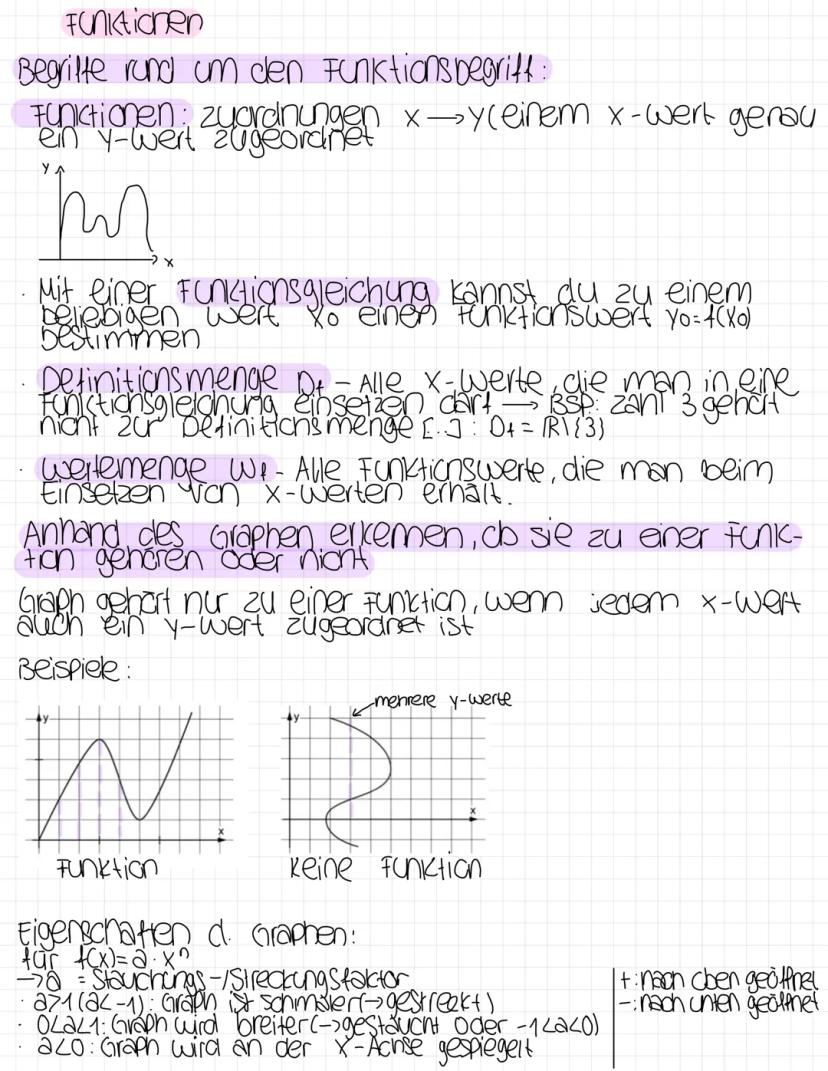 Funktionen
Begriffe rund um den Funktionsbegriff:
Funktionen: Zuordnungen x → y (einem x-Wert genau
ein y-Wert zugeordnet
y
x
· Mit einer Funktionsgleichung kannst du zu einem
beliebigen Wert x₀ einen Funktionswert y₀=f(x₀)
bestimmen
· Definitionsmenge Df – Alle x-Werte, die man in eine
Funktionsgleichung einsetzen darf → Bsp: Zahl 3 gehört
nicht zur Definitionsmenge [...] : Df = ℝ\{3}
· Wertemenge Wf - Alle Funktionswerte, die man beim
Einsetzen von x-Werten erhält.
Anhand des Graphen erkennen, ob sie zu einer Funk-
tion gehören oder nicht
Graph gehört nur zu einer Funktion, wenn jedem x-Wert
auch ein y-Wert zugeordnet ist
Beispiele:
mehrere y-Werte
y
x
y
x
Funktion
Keine Funktion
Eigenschaften d. Graphen:
für f(x)=a·xⁿ
→a = Stauchungs-/Streckungsfaktor
· a>1 (a<-1): Graph ist schmaler (→gestreckt)
· 0<a<1: Graph wird breiter (→gestaucht oder -1<a<0)
· a<0: Graph wird an der x-Achse gespiegelt
+: nach oben geöffnet
-: nach unten geöffnet